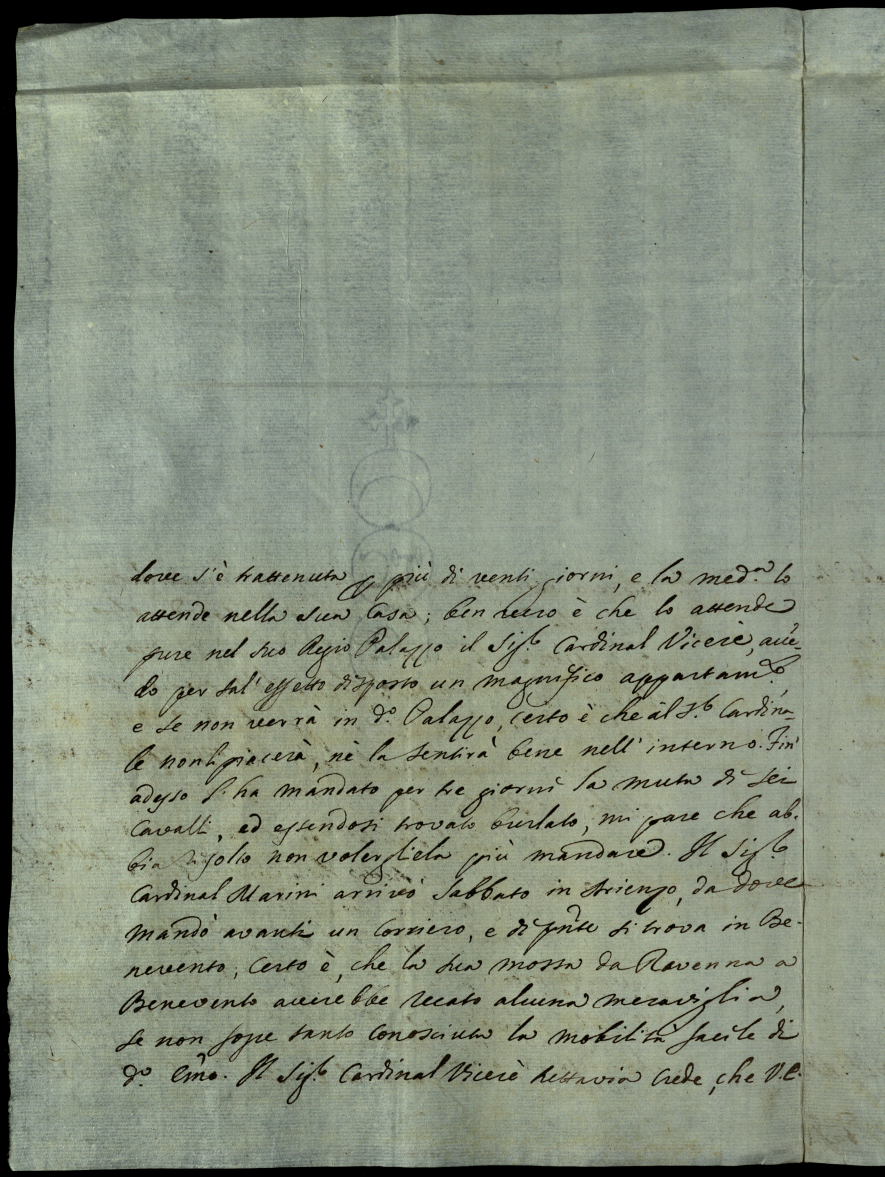 dove s'è trattenuta p più di venti giorni, e la med.ª lo
attende nella sua Casa; ben vero è che lo attende
pure nel suo Regio Palazzo il Sig.r Cardinal Vicerè, aven-
do per tal' effetto disposto un magnifico appartam.to,
e se non verrà in d.º Palazzo, certo è che al S.r Cardina-
le non piacerà, nè la sentirà bene nell' interno. Fin'
adesso l' ha mandato per tre giorni la muta di sei
Cavalli, ed essendosi trovato burlato, mi pare che ab-
bia risolto non volergliela più mandare. Il Sig.r
Cardinal Marini arrivò Sabbato in Arienzo, da dove
mandò avanti un Corriero, e di pnte si trova in Be-
nevento; Certo è, che la sua mossa da Ravenna a
Benevento averebbe recato alcuna meraviglia,
se non fosse tanto conosciuta la mobilità facile di
d.º Emo. Il Sig.r Cardinal Vicerè tuttavia crede, che V.E.